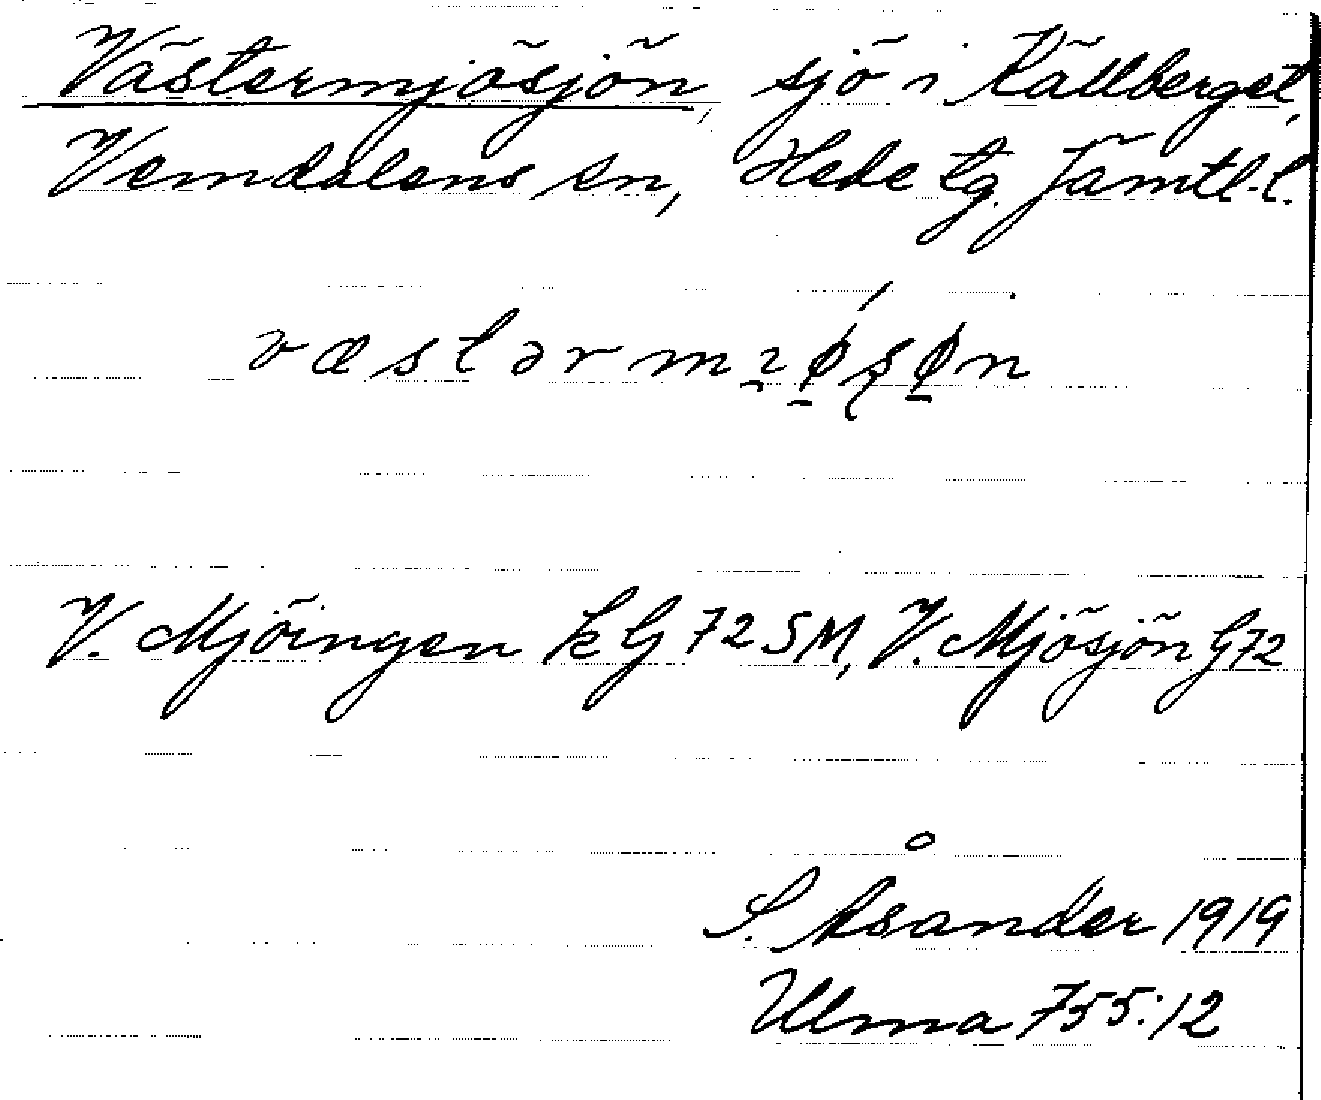 Västermjösjön, sjö i Källberget,
Vemdalens sn, Hede tg. Jämtl. l.
V. Mjöingen k G 72 SM, V. Mjösjön G 72
S. Åsander 1919
Ulma 755:12